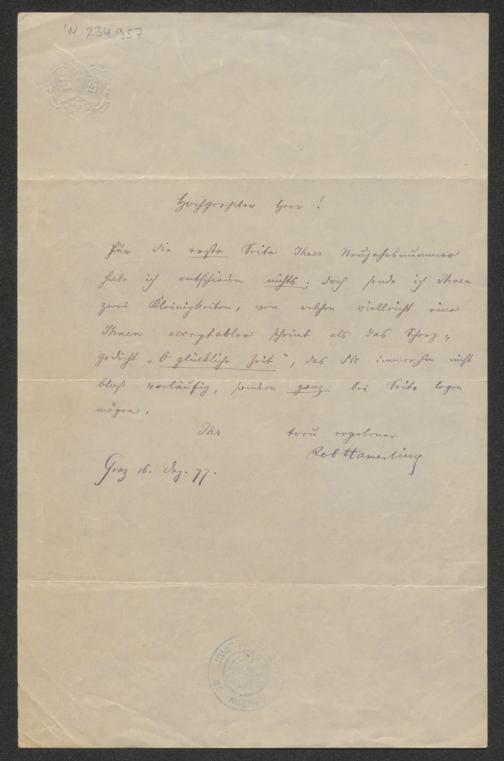 IN 234.957
Hochgeehrter Herr!
Für die erste Seite Ihrer Neujahrsnummer
habe ich entschieden nichts; doch sende ich Ihnen
zwei Kleinigkeiten, von welchen vielleicht eine
Ihnen acceptabler scheint als das Scherz-
gedicht „O glückliche Zeit“, das Sie immerhin nicht
bloß vorläufig, sondern ganz bei Seite legen
mögen.
Ihr treu ergebener
Rob Hamerling
Graz 16. Dez. 77.